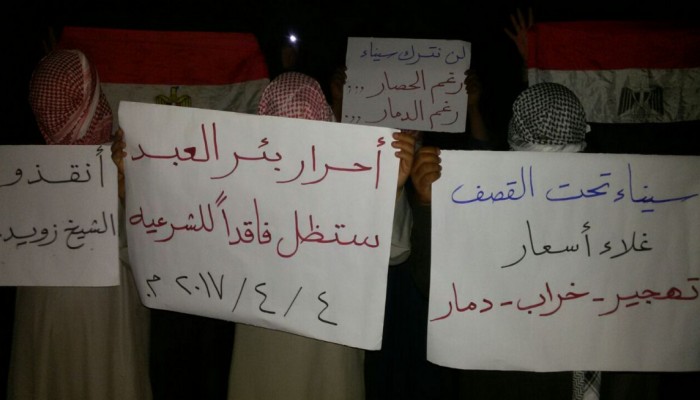 لن نترك سيناء
رغم الحصار ...
رغم الدمار ...
أنقذو
الشيخ زويد
أحرار بئر العبد
ستظل فاقداً للشرعيه
٤ / ٤ / ٢٠١٧ م.
سيناء تحت القصف
غلاء أسعار
تهجير - خراب - دمار